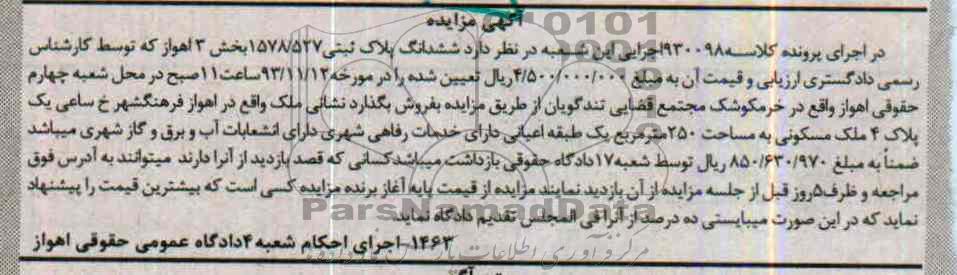 آگهی مزایده
در اجرای پرونده کلاسه ۹۳۰۰۹۸ اجرایی این شعبه در نظر دارد ششدانگ پلاک ثبتی ۱۵۷۸/۵۲۷ بخش ۳ اهواز که توسط کارشناس
رسمی دادگستری ارزیابی و قیمت آن به مبلغ ۴/۵۰۰/۰۰۰/۰۰۰ ریال تعیین شده را در مورخه ۹۳/۱۱/۱۲ ساعت ۱۱ صبح در محل شعبه چهارم
حقوقی اهواز واقع در خرمکوشک مجتمع قضایی تندگویان از طریق مزایده بفروش بگذارد نشانی ملک واقع در اهواز فرهنگشهر خ ساعی یک
پلاک ۴ ملک مسکونی به مساحت ۲۵۰ مترمربع یک طبقه اعیانی دارای خدمات رفاهی شهری دارای انشعابات آب و برق و گاز شهری میباشد
ضمناً به مبلغ ۸۵۰/۶۳۰/۹۷۰ ریال توسط شعبه ۱۷ دادگاه حقوقی بازداشت میباشد کسانی که قصد بازدید از آنرا دارند میتوانند به آدرس فوق
مراجعه و ظرف ۵ روز قبل از جلسه مزایده از آن بازدید نمایند مزایده از قیمت پایه آغاز برنده مزایده کسی است که بیشترین قیمت را پیشنهاد
نماید که در این صورت میبایستی ده درصد از آنرا فی المجلس تقدیم دادگاه نماید
۱۴۶۳- اجرای احکام شعبه ۴ دادگاه عمومی حقوقی اهواز
ParsNamadData
مرکز فرآوری اطلاعات پارس نماد داده ها